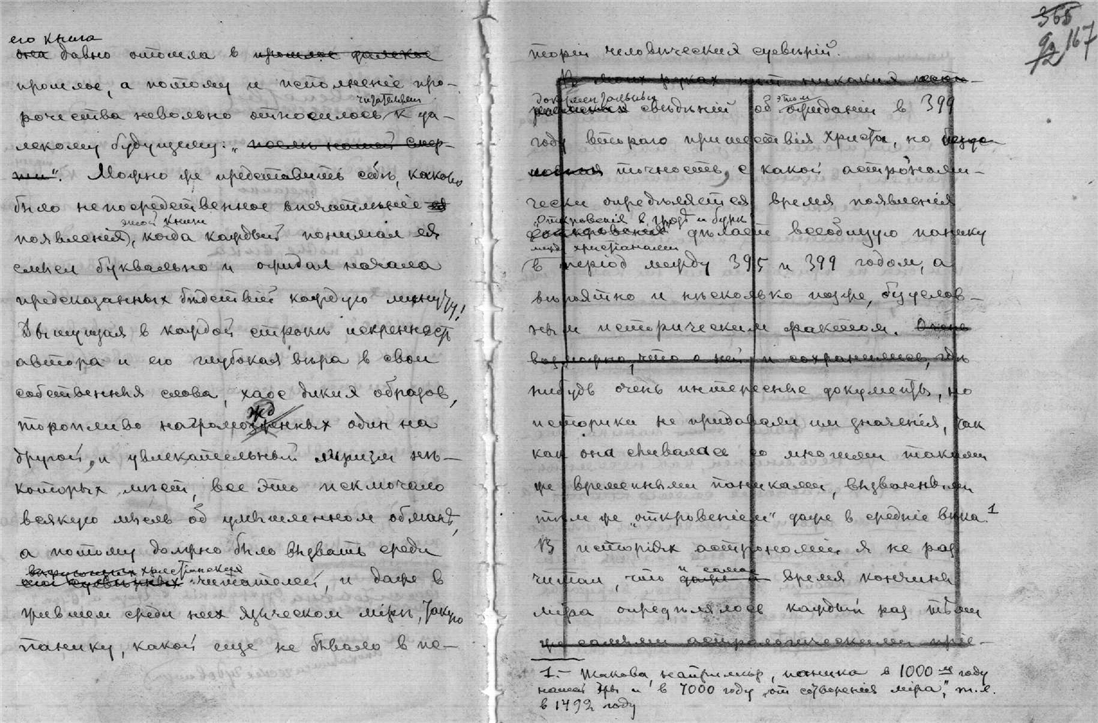 его книга
она давно отошла в прошлое далекое
прошлое, а потому и исполненіе про-
читателями
рочества невольно относилось к да-
лекому будущему: „послѣ нашей смер-
ти“. Можно же представить себѣ, каково
было непосредственное впечатлѣніе ея
этой книги
появленія, когда каждый понимал ея
смысл буквально и ожидал начала
предсказанных бѣдствій каждую минуту!
Дышущая в каждой строкѣ искренность
автора и его глубокая вѣра в свои
собственныя слова, хаос диких образов,
жд
торопливо нагроможденных один на
другой, и увлекательный лиризм нѣ-
которых мѣст, все это исключало
всякую мысль об умышленном обманѣ,
а потому должно было вызвать среди
христіанских
читателей, и даже в
жившем среди них языческом мірѣ, такую
панику, какой еще не бывало в ис-
365
92 167
72
торіи человѣческих суевѣрій.
В моих руках нѣт никаких
документальных этом
свѣдѣній об ожиданіи в 399
году второго пришествія Христа, но
точность, с какой астрономи-
чески опредѣляется время появленія
„Откровенія в грозѣ и бурѣ
дѣлает всеобщую панику
между христіанами
в період между 395 и 399 годом, а
вѣроятно и нѣсколько позже, безуслов-
ным историческим фактом. Очень
возможно, что о ней и сохранились, гдѣ
нибудь очень интересные документы, но
историки не придавали им значенія, так
как она сливалась со многими такими
же временными паниками, вызванными
тѣм же „откровеніем“ даже в средніе вѣка.¹
В исторіях астрономіи я не раз
читал, что и самое время кончины
міра опредѣлялось каждый раз тѣми
же самыми астрологическими пріе-
1.— Такова, например, паника в 1000-м году
нашей эры и в 7000 году „от сотворенія міра“, т.е.
в 1492 году